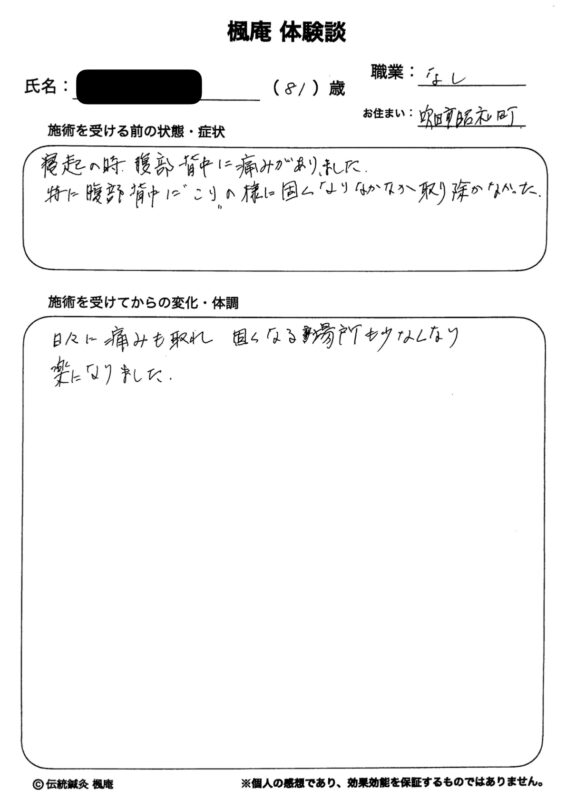 楓庵 体験談
氏名：
（81）歳
職業：なし
お住まい：吹田市昭和町
施術を受ける前の状態・症状
寝起の時 腹部 背中に痛みがありました.
特に腹部 背中に"こり"の様に固くなりなかなか取り除かなかった.
施術を受けてからの変化・体調
日々に痛みも取れ 固くなる場所も少なくなり
楽になりました.
©伝統鍼灸 楓庵
※個人の感想であり、効果効能を保証するものではありません。